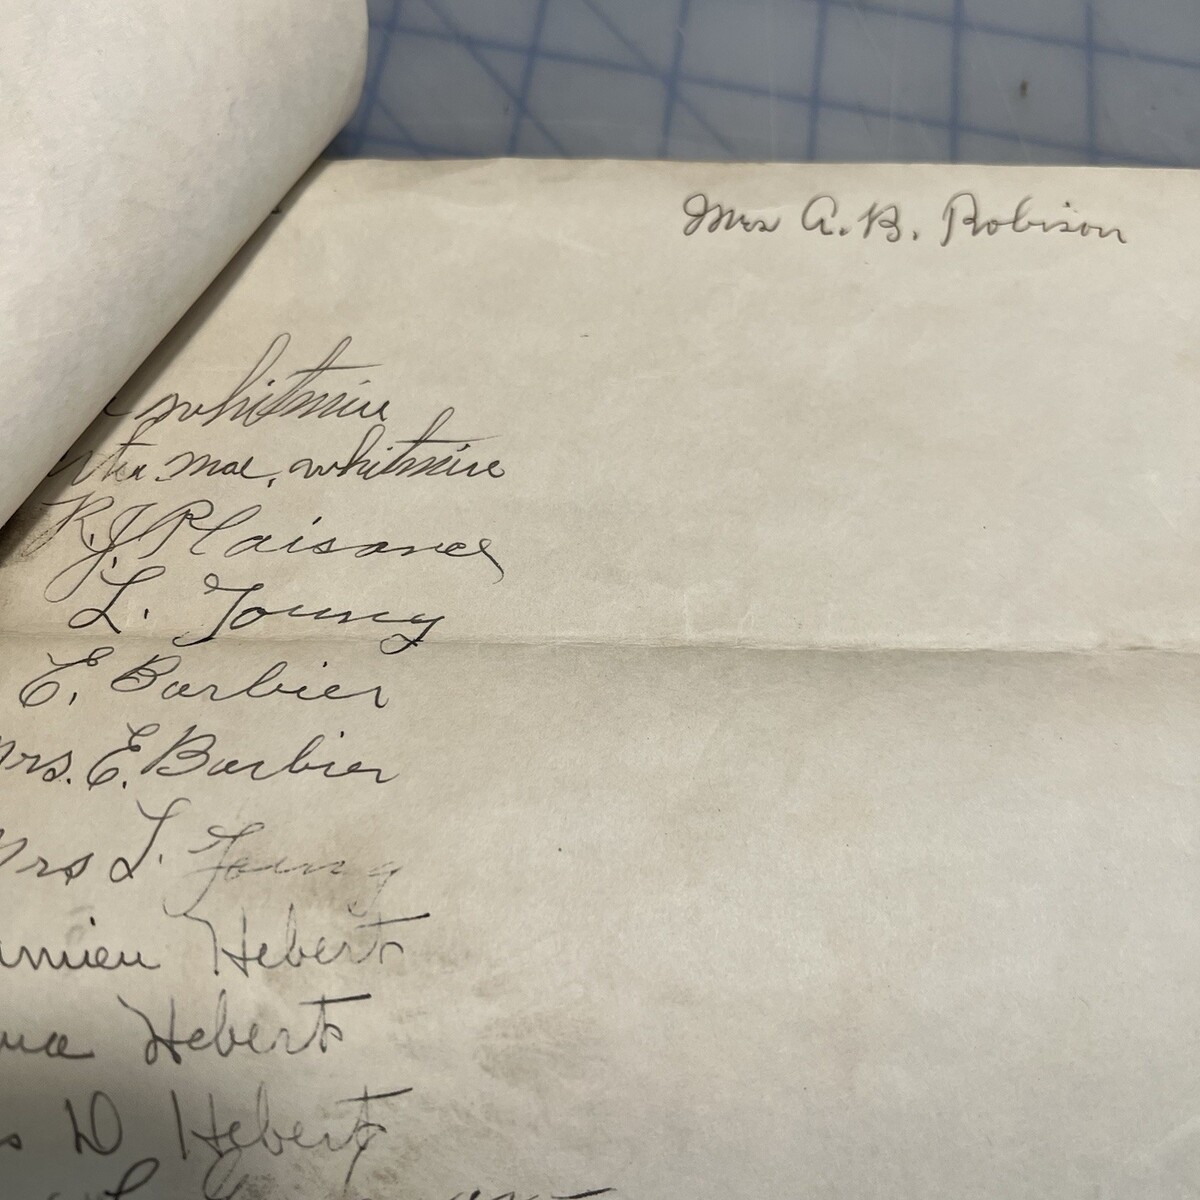 Mrs A. B. Robison
whitmire
mae, whitmire
R. J. Plaisance
L. Young
E. Barbier
Mrs. E. Barbier
Mrs L. Young
Hebert
Hebert
D Hebert